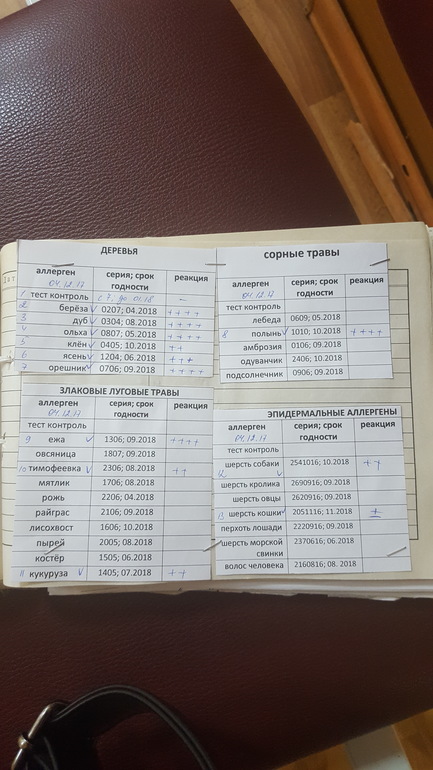 ДЕРЕВЬЯ
аллерген серия; срок годности реакция
04.12.17
1 тест контроль с.7. до 01.18 –
2 берёза ✓ 0207; 04.2018 ++++
3 дуб ✓ 0304; 08.2018 ++++
4 ольха ✓ 0807; 05.2018 ++++
5 клён ✓ 0405; 10.2018 ++++
6 ясень ✓ 1204; 06.2018 +++
7 орешник ✓ 0706; 09.2018 ++++
сорные травы
аллерген серия; срок годности реакция
04.12.17
тест контроль
лебеда 0609; 05.2018
8 полынь ✓ 1010; 10.2018 ++++
амброзия 0106; 09.2018
одуванчик 2406; 10.2018
подсолнечник 0906; 09.2018
ЗЛАКОВЫЕ ЛУГОВЫЕ ТРАВЫ
аллерген серия; срок годности реакция
04.12.17
тест контроль
9 ежа ✓ 1306; 09.2018 ++++
овсяница 1807; 09.2018
10 тимофеевка ✓ 2306; 08.2018 ++
мятлик 1706; 08.2018
рожь 2206; 04.2018
райграс 2106; 09.2018
лисохвост 1606; 10.2018
пырей 2005; 08.2018
костёр 1505; 06.2018
11 кукуруза ✓ 1405; 07.2018 ++
ЭПИДЕРМАЛЬНЫЕ АЛЛЕРГЕНЫ
аллерген серия; срок годности реакция
04.12.17
тест контроль
шерсть собаки 2541016; 10.2018 ++
12 ✓
шерсть кролика 2690916; 09.2018
шерсть овцы 2620916; 09.2018
13 шерсть кошки ✓ 2051116; 11.2018 ±
перхоть лошади 2220916; 09.2018
шерсть морской свинки 2370616; 06.2018
волос человека 2160816; 08. 2018